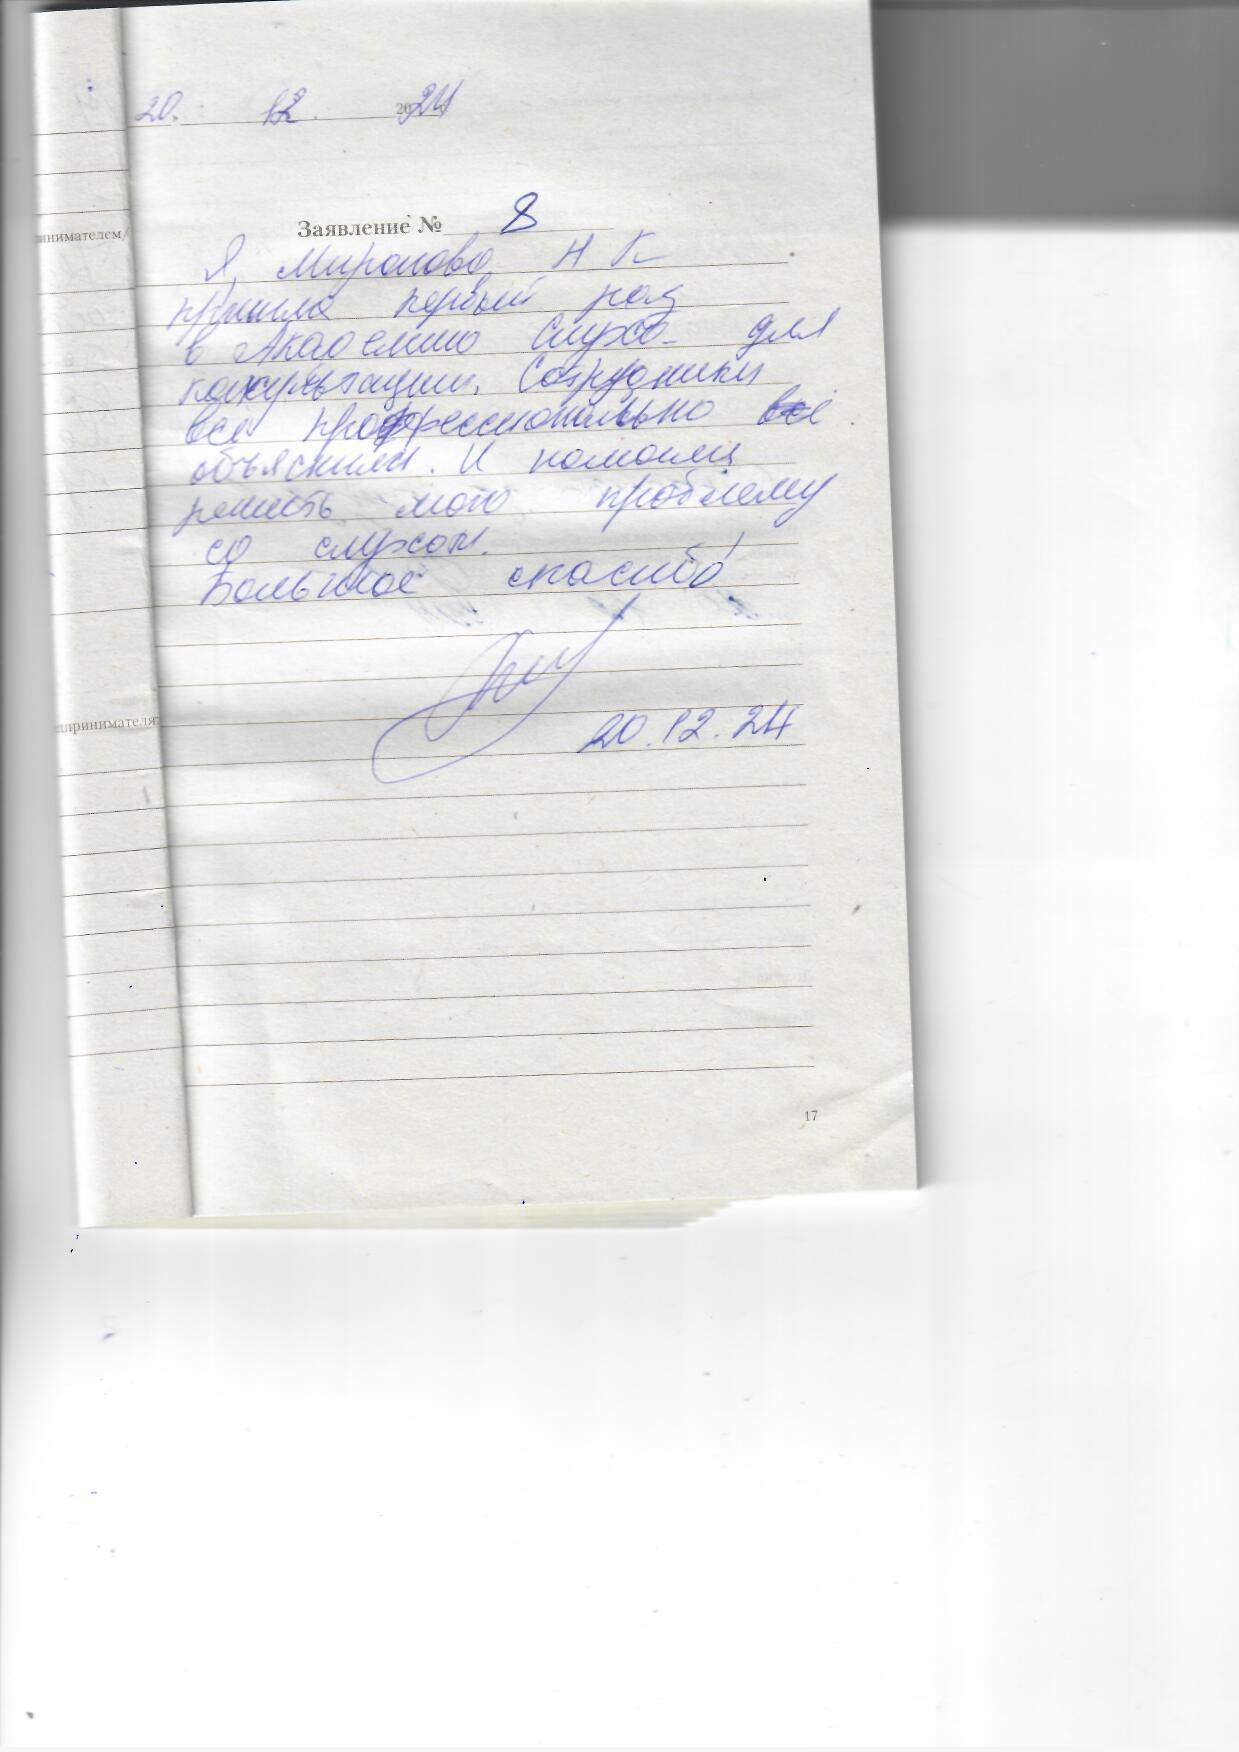 20. 12. 2024
Заявление № 8
инимателем/
Я, Миронова Н К
пришла первый раз
в Академию Слуха для
консультации. Сотрудники
все профессионально всё
объяснили. И помогли
решить мою проблему
со слухом.
Большое спасибо!
дпринимателя:
20.12.24
17